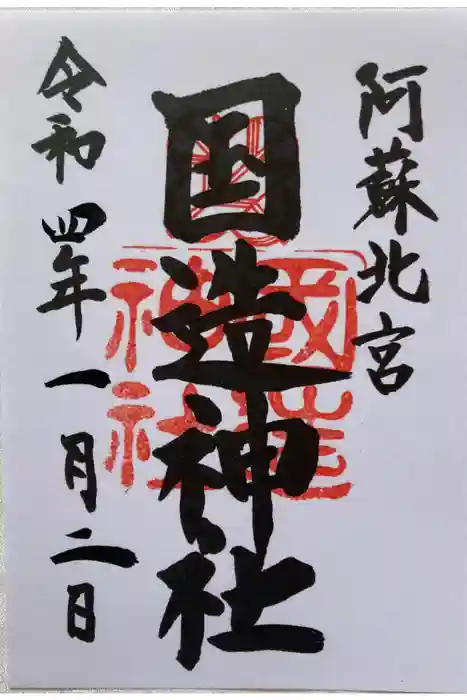 阿蘇北宮
国造神社
國造
神社
令和四年一月二日